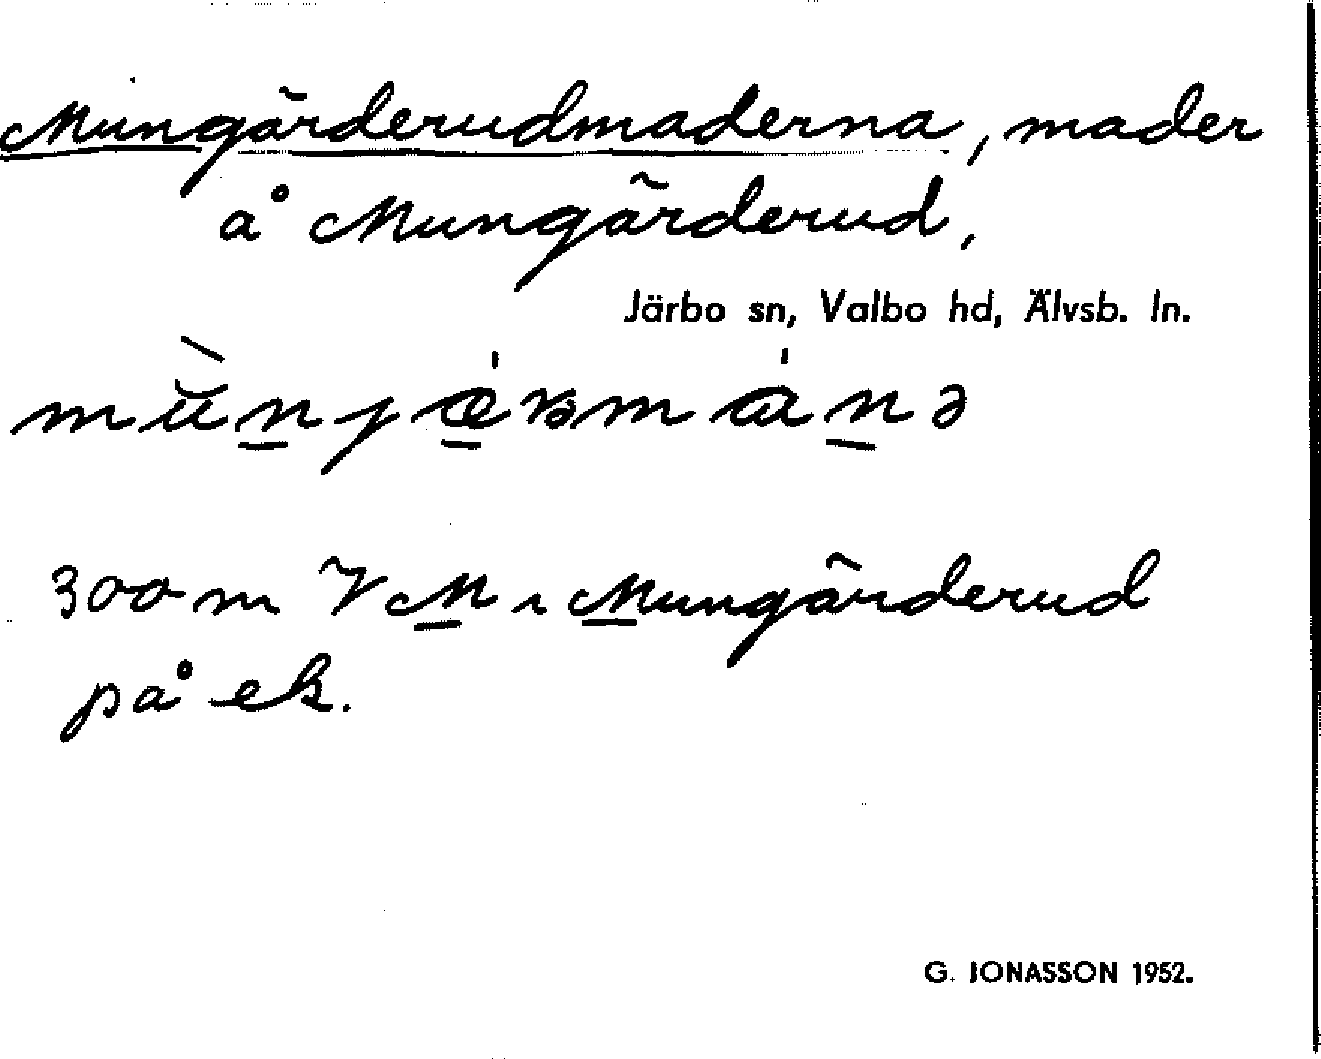 Mungärderudmaderna, mader
å Mungärderud,
Järbo sn, Valbo hd, Älvsb. ln.
300 m V M i Mungärderud
på ek.
G. JONASSON 1952.